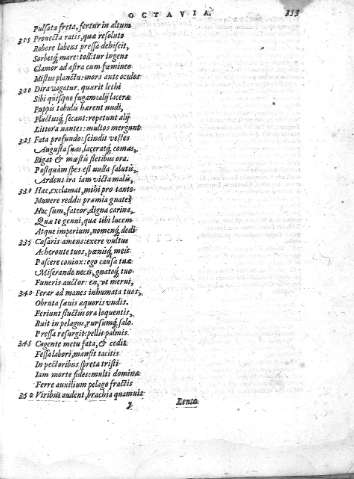 OCTAVIA. 333
Pulsata freta, fertur in altum
315 Prouecta ratis, quæ resoluto
Robore labens pressa dehiscit,
Sorbetq; mare: tollitur ingens
Clamor ad astra cum fœmineo
Mistus planctu: mors ante oculos
320 Dira vagatur. quærit lethi
Sibi quisque fugam: alij laceræ
Puppis tabulis hærent nudi,
Fluctusq; secant: repetunt alij
Littora nantes: multos mergunt
325 Fata profundo: scindit vestes
Augusta suas, laceratq; comas,
Rigat & mœstis fletibus ora.
Postquam spes est nulla salutis,
Ardens ira iam victa malis,
330 Hæc, exclamat, mihi pro tanto
Munere reddis præmia gnate?
Hac sum, fateor, digna carina,
Quæ te genui, quæ tibi lucem
Atque imperium, nomenq; dedi
335 Cæsaris amens: exere vultus
Acheronte tuos, pœnisq; meis
Pascere coniux: ego causa tuæ
Miseranda necis, gnatoq; tuo
Funeris auctor: en, vt merui,
340 Ferar ad manes inhumata tuos,
Obruta sæuis æquoris vndis.
Feriunt fluctus ora loquentis,
Ruit in pelagus, rursumq; salo
Pressa resurgit: pellit palmis
345 Cogente metu fata, & cedit
Fessa labori, mansit tacitis
In pectoribus spreta tristi
Iam morte fides: multi dominæ
Ferre auxilium pelago fractis
350 Viribus audent, brachia quamuis
Y Lenta